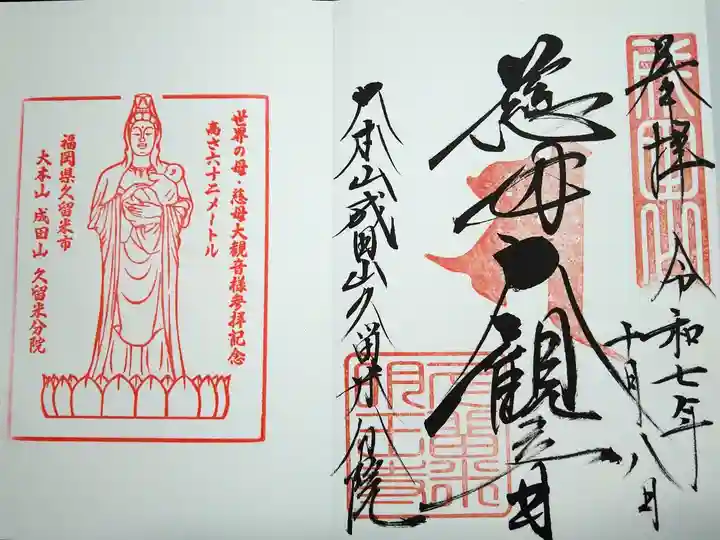 奉拝
令和七年
十月八日
慈母大観音
大本山成田山久留米分院
世界の母・慈母大観音様参拝記念
高さ六十二メートル
福岡県久留米市
大本山 成田山 久留米分院